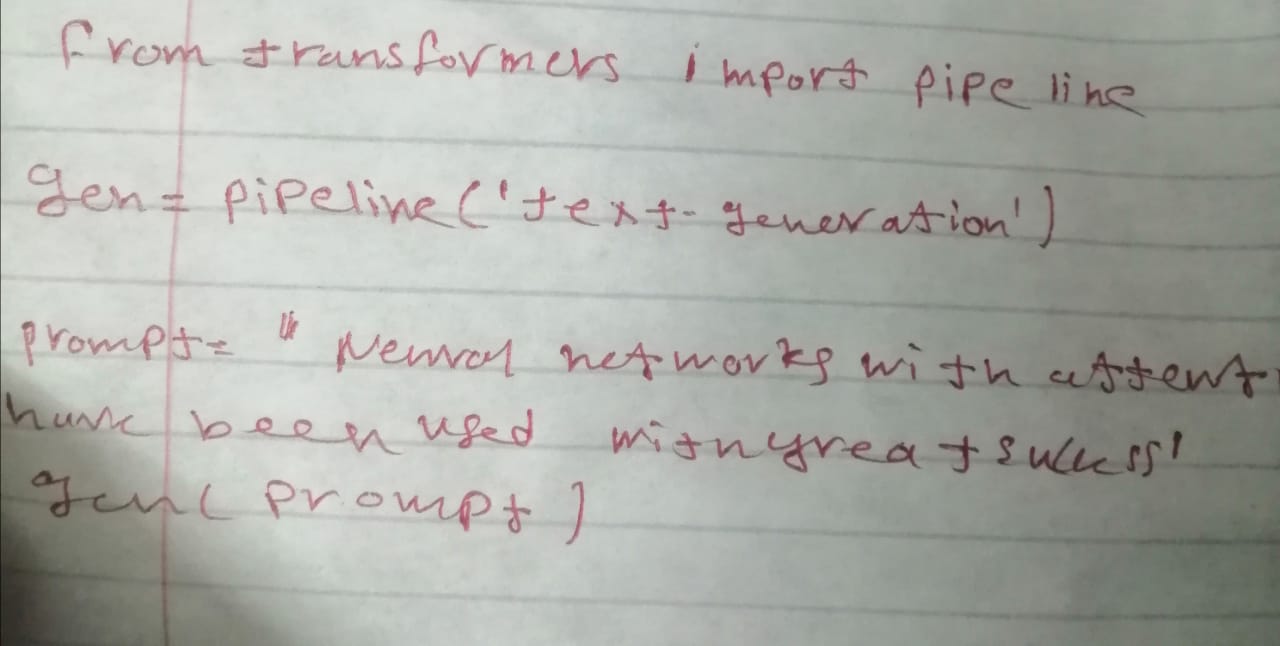 from transformers import pipeline
gen = pipeline('text-generation')
prompt = " Neural networks with attent
have been used with great success'
gen( prompt )